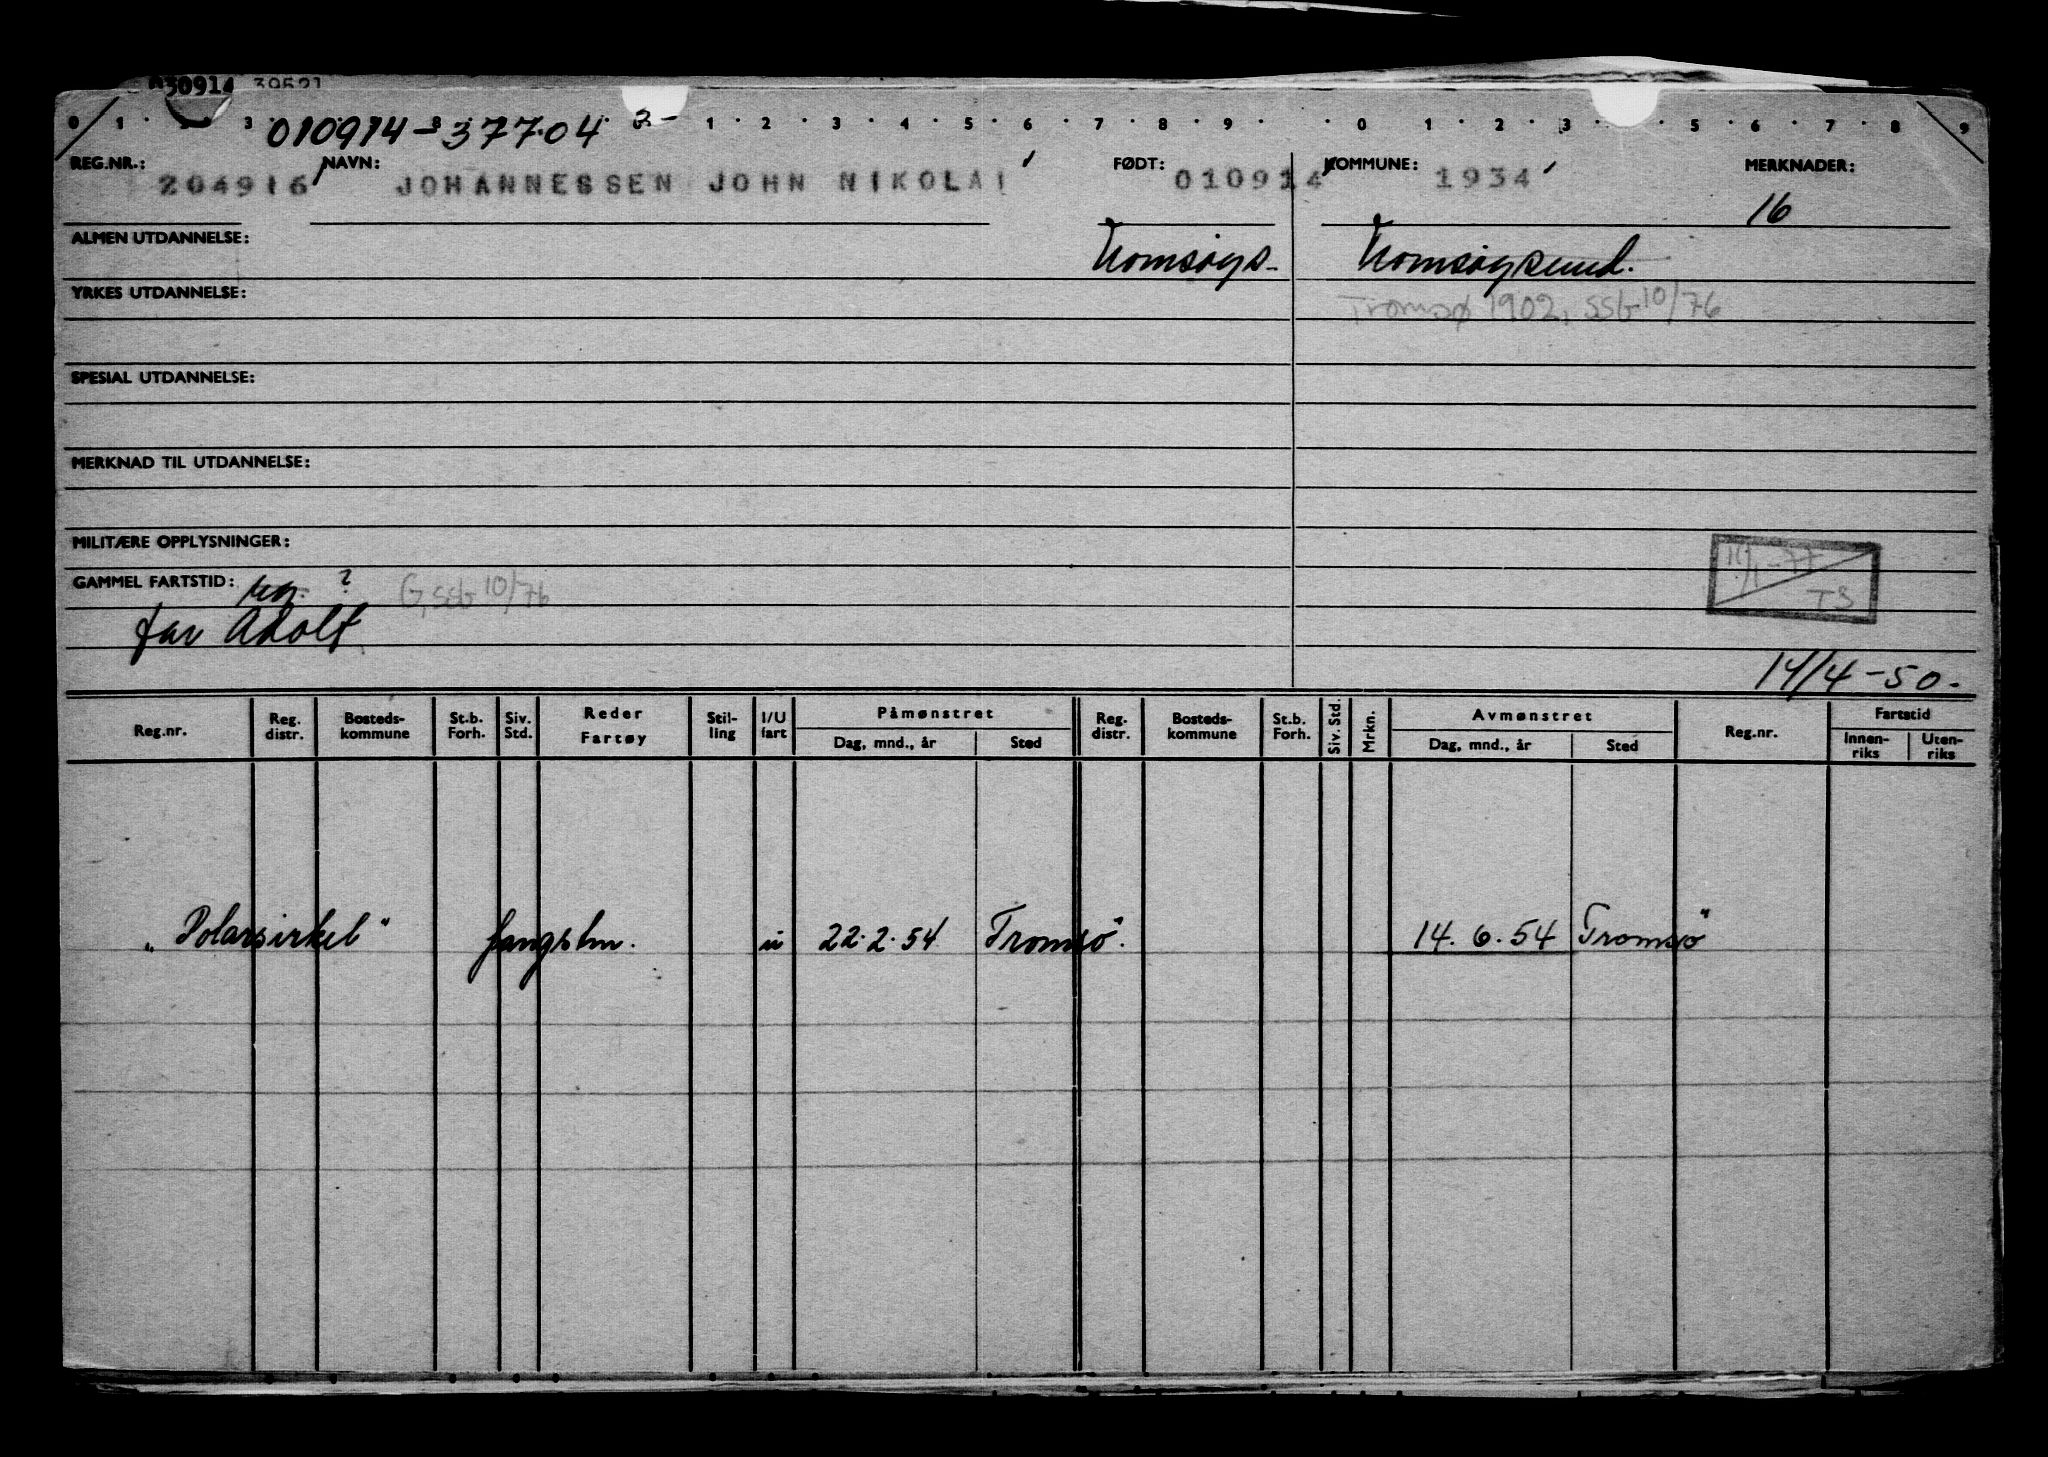 030914 39521
0 1 2 3 1 2 3 4 5 6 7 8 9 0 1 2 3 5 6 7 8 9
010914-37704
REG.NR.: NAVN: FØDT: KOMMUNE: MERKNADER:
204916 JOHANNESSEN JOHN NIKOLAI 010914 1934
16
ALMEN UTDANNELSE: Tromsøys- Tromsøysund.
YRKES UTDANNELSE:
Tromsø 1902, SSG 10/76
SPESIAL UTDANNELSE:
MERKNAD TIL UTDANNELSE:
MILITÆRE OPPLYSNINGER:
11/1-77
TS
GAMMEL FARTSTID: reg. ? G, SSG 10/76
far Adolf
14/4-50.
Reg.nr. Reg. distr. Bosteds- kommune St.b. Forh. Siv. Std. Reder Fartøy Stil- ling I/U fart Påmønstret Dag, mnd., år Sted Reg. distr. Bosteds- kommune St.b. Forh. Siv. Std. Mrkn. Avmønstret Dag, mnd., år Sted Reg.nr. Fartstid Innen- riks Uten- riks
"Polarsirkel" fangstm. u 22.2.54 Tromsö. 14.6.54 Tromsö